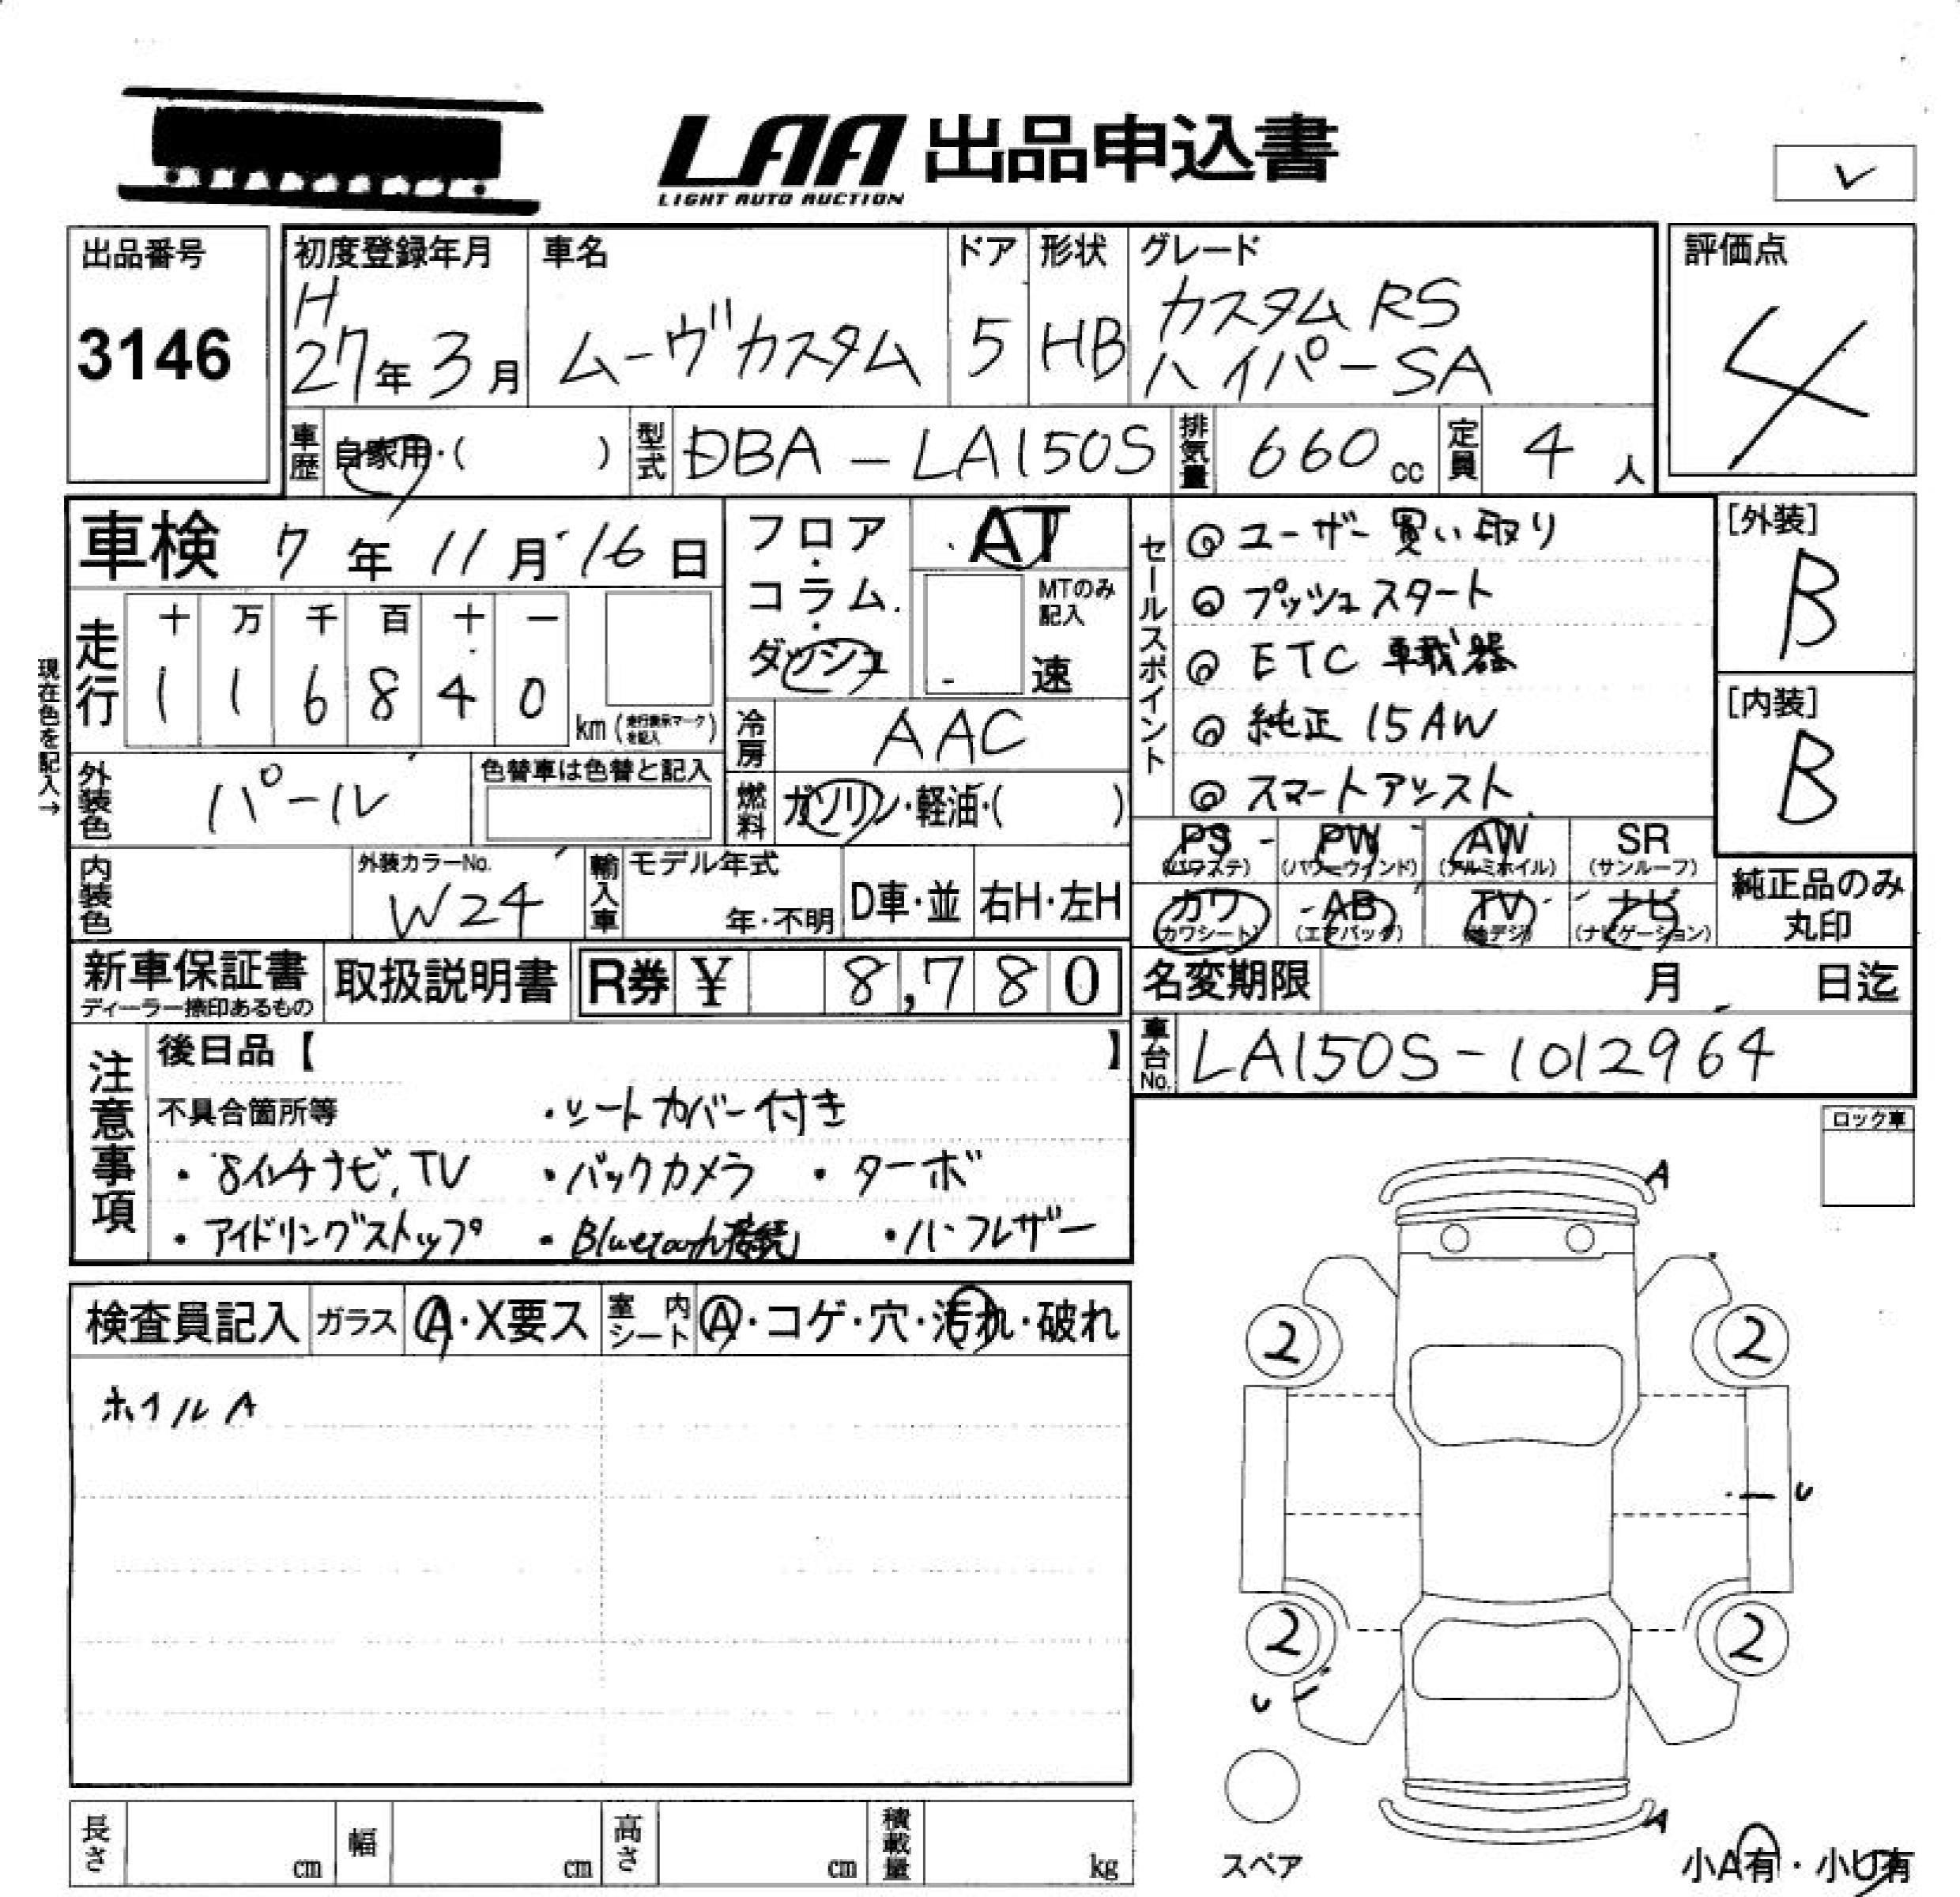 LAA 出品申込書
LIGHT AUTO AUCTION
出品番号
3146
初度登録年月
H
27年 3月
車名
ムーヴカスタム
ドア
5
形状
HB
グレード
カスタム RS
ハイパーSA
評価点
4
車歴
自家用・( )
型式
DBA-LA150S
排気量
660 cc
定員
4 人
車検 7年 11月 16日
現在色を記入→
走行
十 万 千 百 十 一
1 1 6 8 4 0
km (走行表示マークを記入)
フロア・コラム・ダッシュ
AT
MTのみ記入
速
冷房
AAC
燃料
ガソリン・軽油・( )
セールスポイント
◎ユーザー買い取り
◎プッシュスタート
◎ETC 車載器
◎純正 15AW
◎スマートアシスト
[外装]
B
[内装]
B
外装色
パール
色替車は色替と記入
内装色
外装カラーNo.
W24
輸入車
モデル年式
年・不明
D車・並
右H・左H
PS (パワステ)
PW (パワーウインド)
AW (アルミホイル)
SR (サンルーフ)
カワ (カワシート)
AB (エアバッグ)
TV (地デジ)
ナビ (ナビゲーション)
純正品のみ丸印
新車保証書
ディーラー捺印あるもの
取扱説明書
R券 ¥ 8,780
名変期限 月 日迄
車台No.
LA150S-1012964
注意事項
後日品【 】
不具合箇所等
・シートカバー付き
・8インチナビ,TV ・バックカメラ ・ターボ
・アイドリングストップ ・Bluetooth接続 ・ハーフレザー
ロック車
検査員記入
ガラス
A・X要ス
室内シート
A・コゲ・穴・汚れ・破れ
ホイルA
A
2 2
U
2 2
U
A
スペア
小A有・小U有
長さ cm
幅 cm
高さ cm
積載量 kg